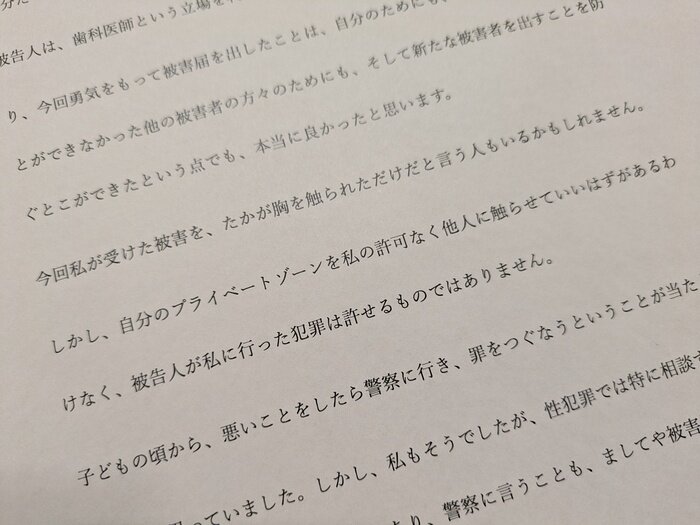 被告人は、歯科医師という立場を
り、今回勇気をもって被害届を出したことは、自分のためにも、
とができなかった他の被害者の方々のためにも、そして新たな被害者を出すことを防
ぐとこができたという点でも、本当に良かったと思います。
今回私が受けた被害を、たかが胸を触られただけだと言う人もいるかもしれません。
しかし、自分のプライベートゾーンを私の許可なく他人に触らせていいはずがあるわ
けなく、被告人が私に行った犯罪は許せるものではありません。
子どもの頃から、悪いことをしたら警察に行き、罪をつぐなうということが当た
っていました。しかし、私もそうでしたが、性犯罪では特に相談す
より、警察に言うことも、ましてや被害